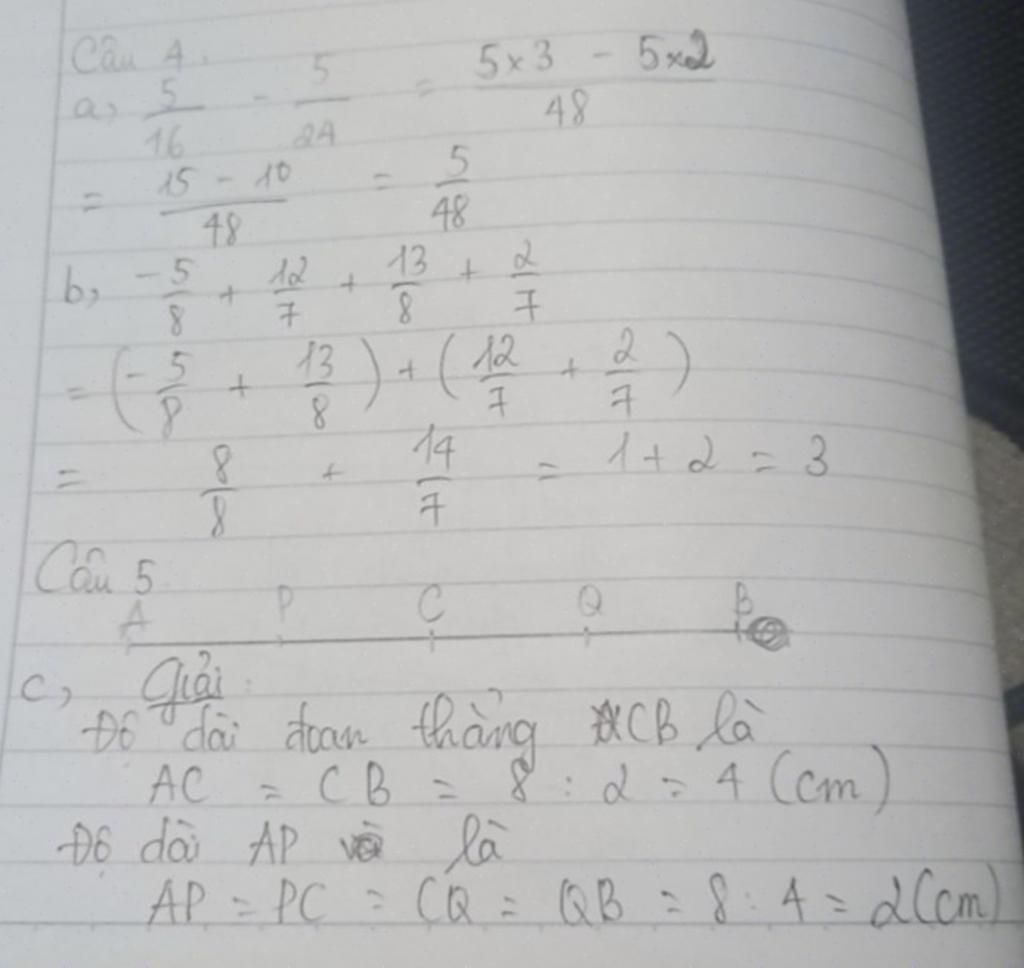 Câu 4.
a, 5/16 - 5/24 = (5×3 - 5×2)/48
= (15 - 10)/48 = 5/48
b, -5/8 + 12/7 + 13/8 + 2/7
= (-5/8 + 13/8) + (12/7 + 2/7)
= 8/8 + 14/7 = 1 + 2 = 3
Câu 5
A P C Q B
c, Giải
Độ dài đoan thẳng CB là
AC = CB = 8 : 2 = 4 (cm)
Độ dài AP là
AP = PC = CQ = QB = 8 : 4 = 2 (cm)